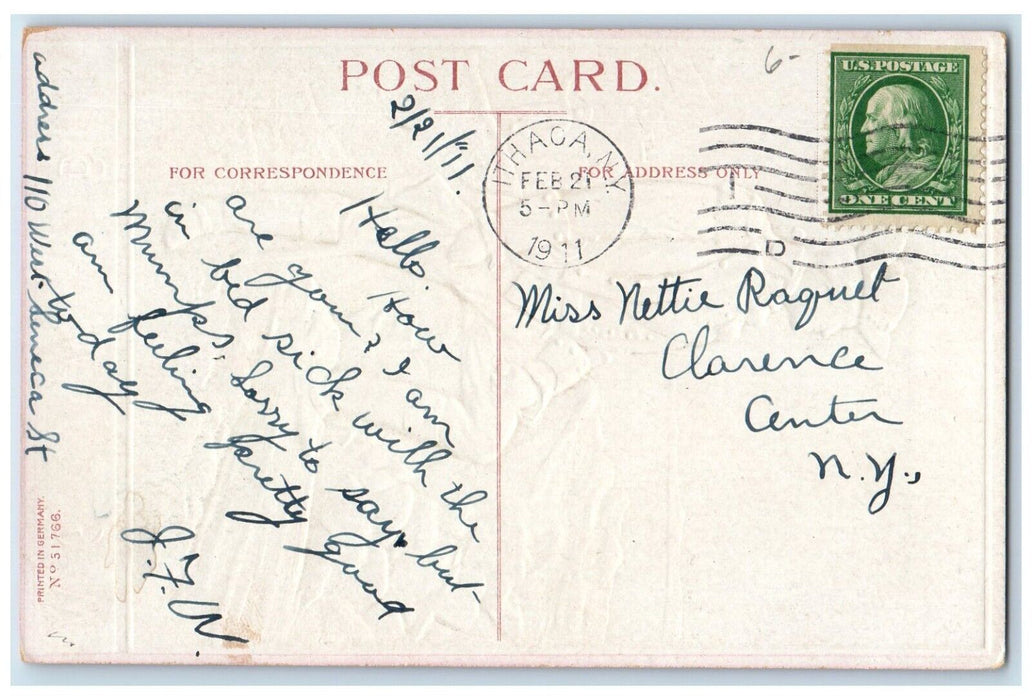 POST CARD.
6-
U.S. POSTAGE
ONE CENT
ITHACA, N.Y.
FEB 21
5-PM
1911
D
FOR CORRESPONDENCE
FOR ADDRESS ONLY
2/21/11.
Hello. How
are you? I am
in bed sick with the
mumps. Sorry to say, but
am feeling pretty good
to-day
J.F.W.
Miss Nettie Raquet
Clarence
Center
N.Y.,
address 110 West Seneca St
PRINTED IN GERMANY.
No 31766.